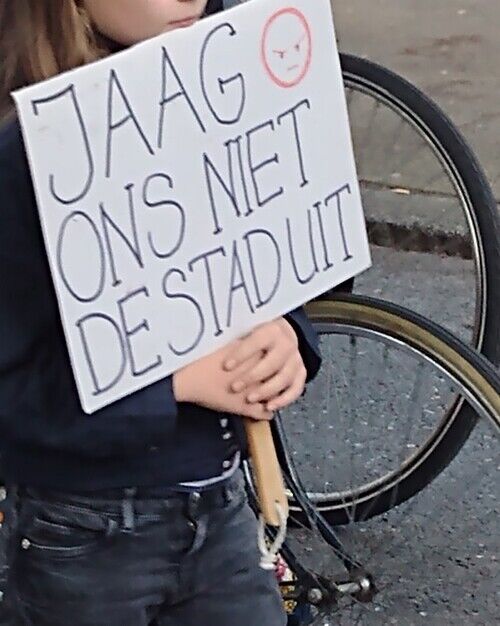 JAAG
ONS NIET
DE STAD UIT